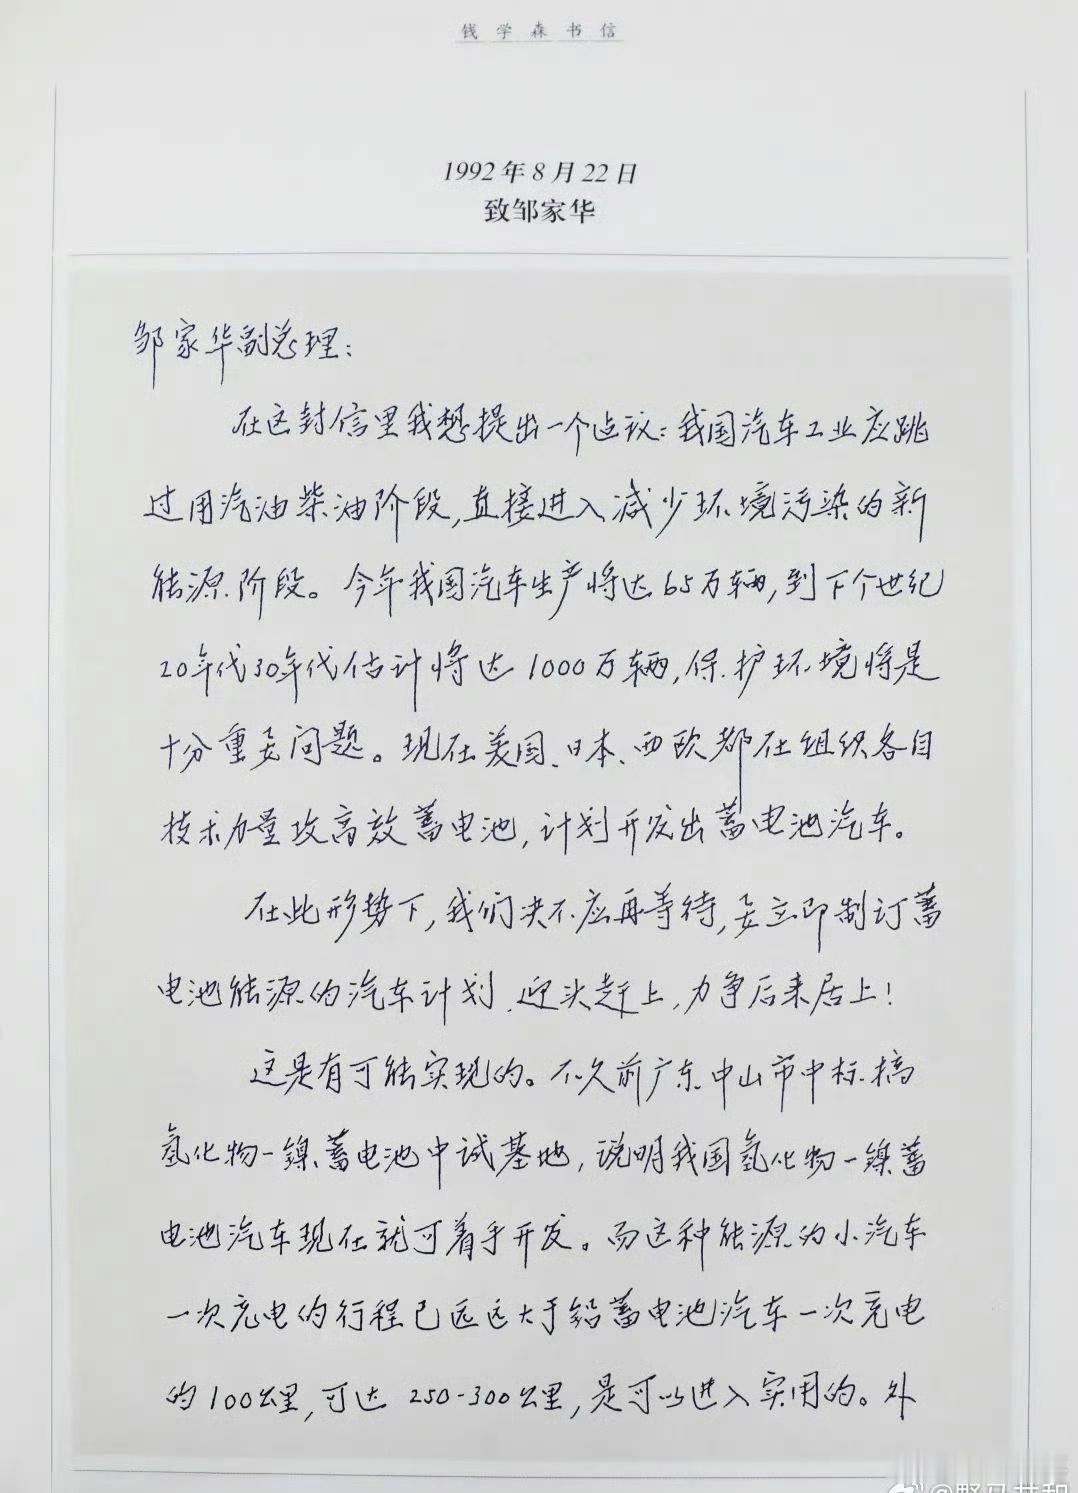 钱学森书信
1992年8月22日
致邹家华
邹家华副总理：
在这封信里我想提出一个建议：我国汽车工业应跳
过用汽油柴油阶段，直接进入减少环境污染的新
能源阶段。今年我国汽车生产将达65万辆，到下个世纪
20年代30年代估计将达1000万辆，保护环境将是
十分重要问题。现在美国、日本、西欧都在组织各自
技术力量攻高效蓄电池，计划开发出蓄电池汽车。
在此形势下，我们决不应再等待，要立即制订蓄
电池能源的汽车计划，迎头赶上，力争后来居上！
这是有可能实现的。不久前广东中山市中标搞
氢化物－镍蓄电池中试基地，说明我国氢化物－镍蓄
电池汽车现在就可着手开发。而这种能源的小汽车
一次充电的行程已远远大于铅蓄电池汽车一次充电
的100公里，可达250-300公里，是可以进入实用的。外